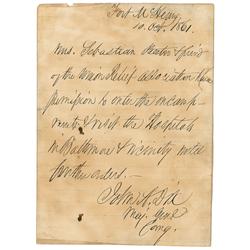 Fort McHenry
10. Oct. 1861.
Mrs. Sebastian Streeter & friend
of the Union Relief Association have
permission to enter the encamp-
ments & visit the Hospitals
in Baltimore & vicinity until
further orders.
John A. Dix
Maj. Genl
Comg.